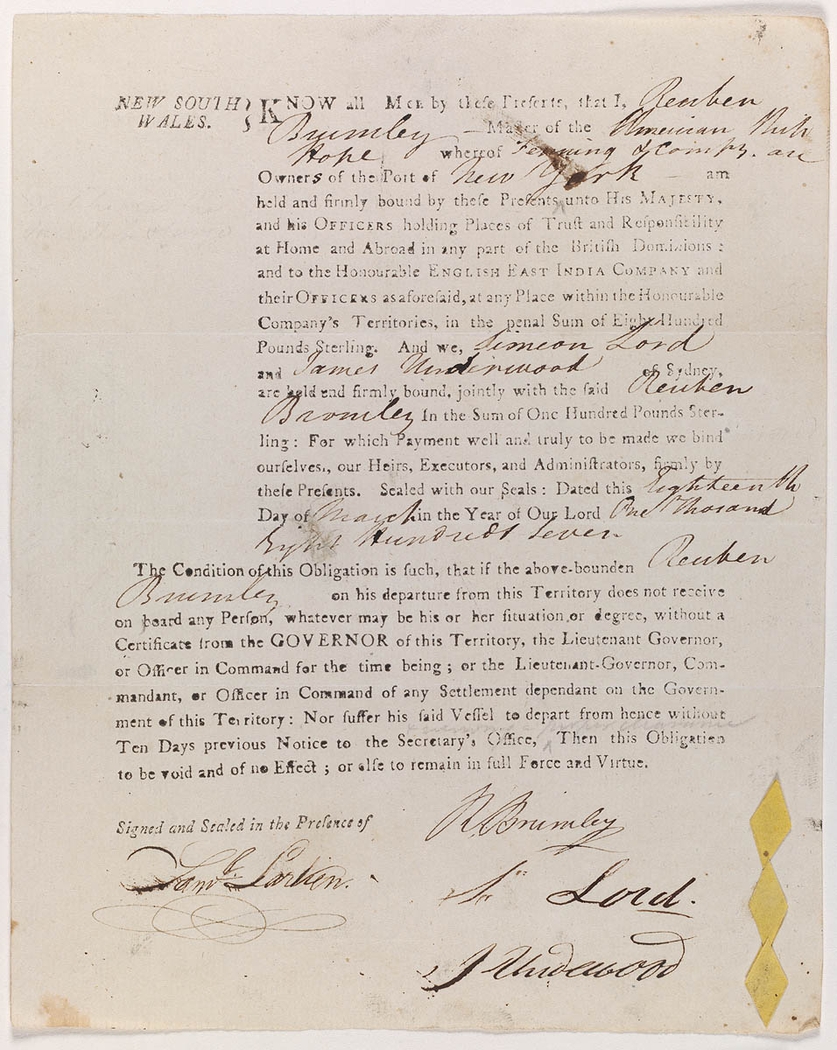 NEW SOUTH WALES. } KNOW all Men by these Presents, that I, Reuben
Brumley — Master of the American Ship
Hope whereof Fanning & Compy. are
Owners of the Port of New York — am
held and firmly bound by these Presents unto HIS MAJESTY,
and his OFFICERS holding Places of Trust and Responsibility
at Home and Abroad in any part of the British Dominions :
and to the Honourable ENGLISH EAST INDIA COMPANY and
their OFFICERS as aforesaid, at any Place within the Honourable
Company's Territories, in the penal Sum of Eight Hundred
Pounds Sterling. And we, Simeon Lord
and James Underwood of Sydney,
are held and firmly bound, jointly with the said Reuben
Bromley In the Sum of One Hundred Pounds Ster-
ling : For which Payment well and truly to be made we bind
ourselves, our Heirs, Executors, and Administrators, firmly by
these Presents. Sealed with our Seals : Dated this Eighteenth
Day of March in the Year of Our Lord One Thosand
Eight Hundred & Seven
The Condition of this Obligation is such, that if the above-bounden Reuben
Brumley on his departure from this Territory does not receive
on board any Person, whatever may be his or her situation or degree, without a
Certificate from the GOVERNOR of this Territory, the Lieutenant Governor,
or Officer in Command for the time being ; or the Lieutenant-Governor, Com-
mandant, or Officer in Command of any Settlement dependant on the Govern-
ment of this Territory : Nor suffer his said Vessel to depart from hence without
Ten Days previous Notice to the Secretary's Office, Then this Obligation
to be void and of no Effect ; or else to remain in full Force and Virtue.
Signed and Sealed in the Presence of
R Brumley
Saml. Larken.
Sn Lord.
J Underwood